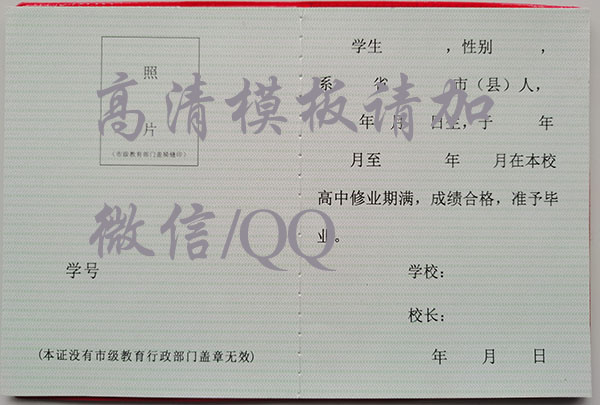 照
片
(市级教育部门盖骑缝印)
学号
(本证没有市级教育行政部门盖章无效)
学生 ,性别 ,
系 省 市(县)人,
年 月 日生,于 年
月至 年 月在本校
高中修业期满,成绩合格,准予毕
业。
学校:
校长:
年 月 日
高清模板请加
微信/QQ